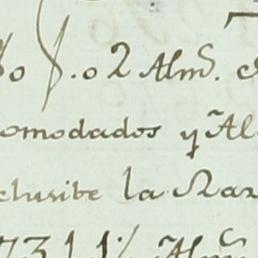 .o2 Alm.
omodados y Al
clusibe la Raz
7311½ Alm